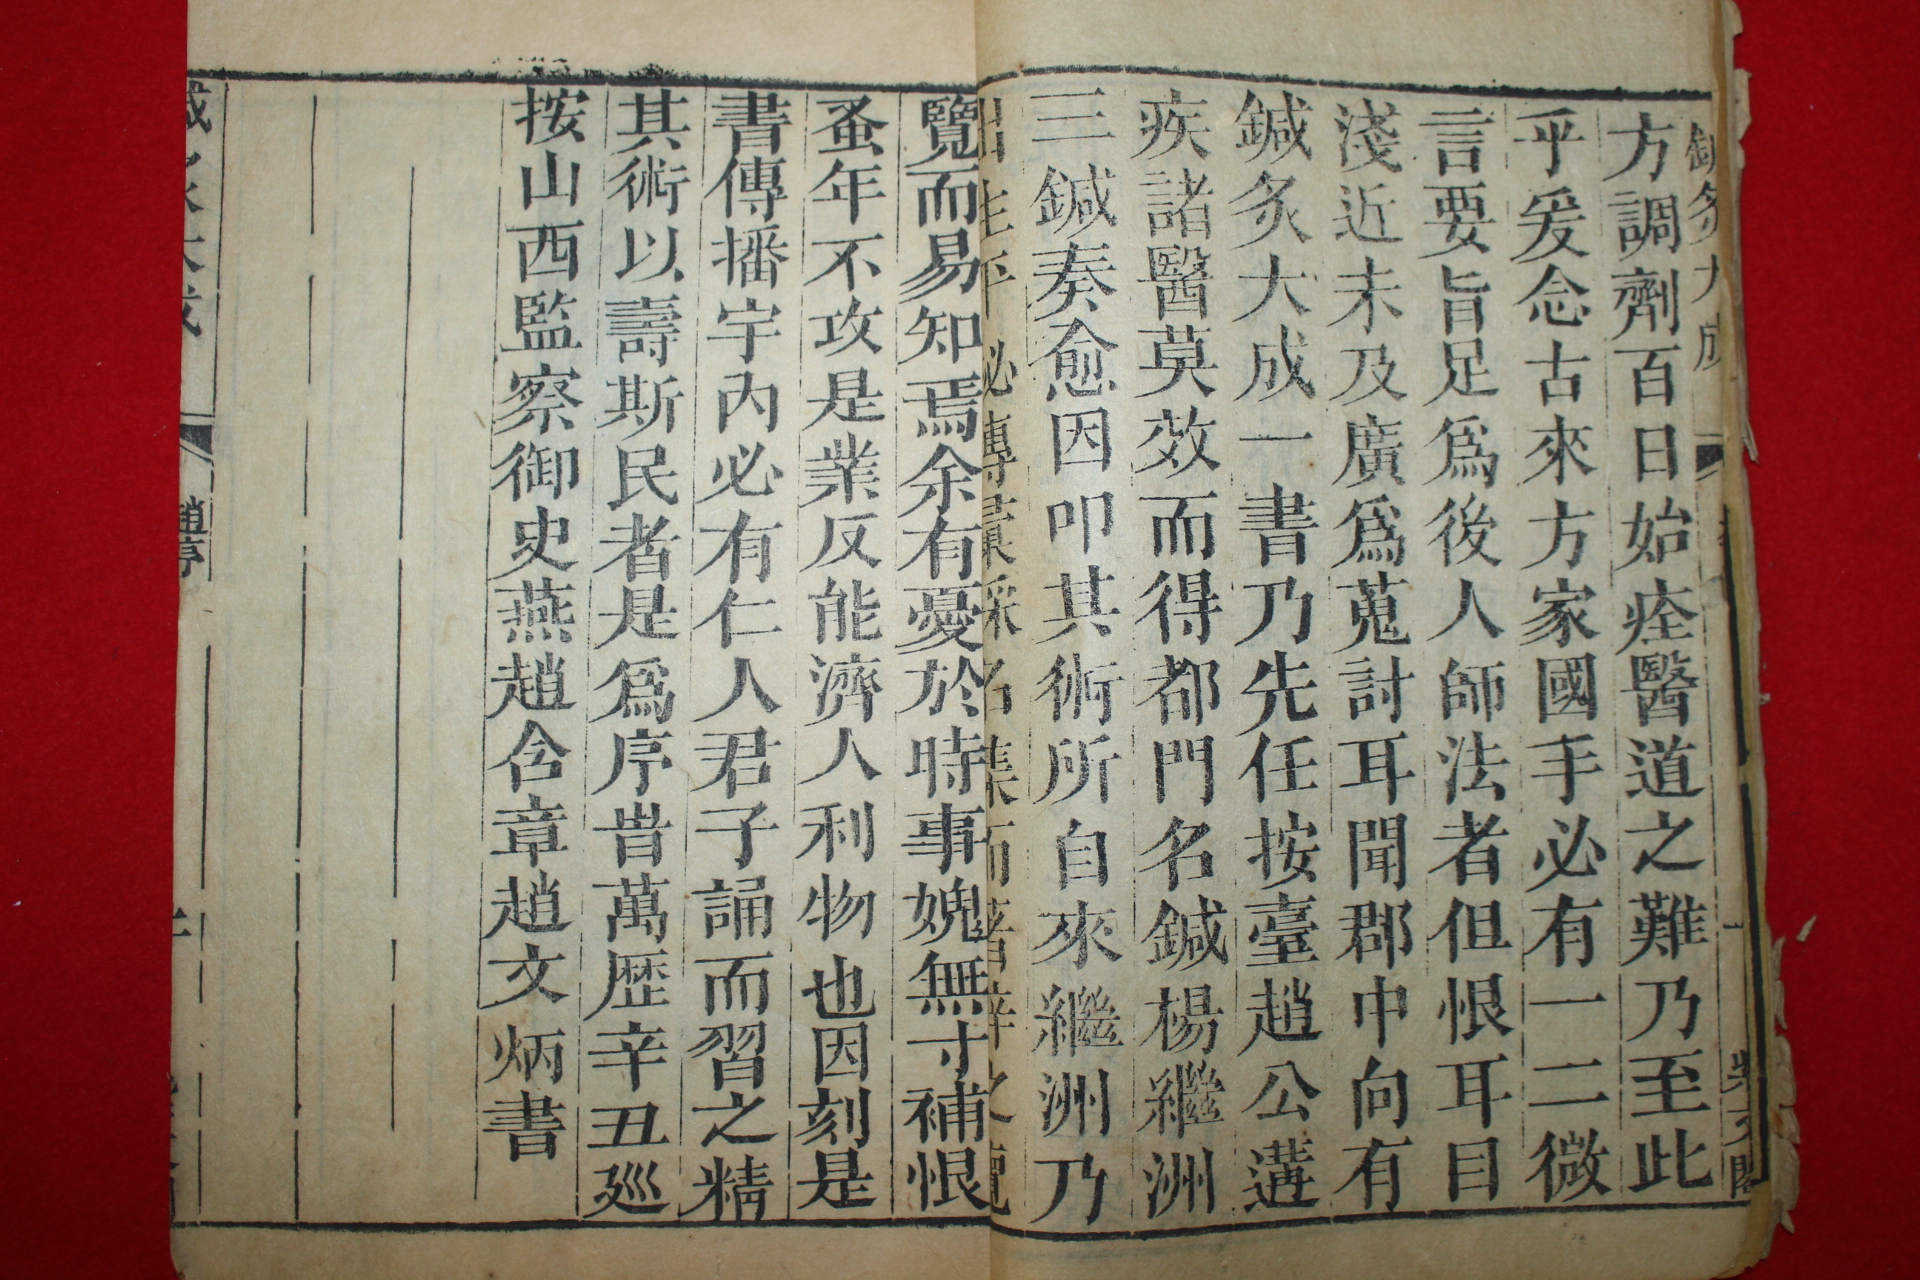 鍼灸大成
方調劑百日始痊醫道之難乃至此
乎爰念古來方家國手必有一二微
言要旨足爲後人師法者但恨耳目
淺近未及廣爲蒐討耳聞郡中向有
鍼灸大成一書乃先任按臺趙公遘
疾諸醫莫效而得都門名鍼楊繼洲
三鍼奏愈因叩其術所自來繼洲乃
出生平秘傳彙採名集而著梓之竟
覽而易知焉余有憂於時事媿無寸補恨
蚤年不攻是業反能濟人利物也因刻是
書傳播宇內必有仁人君子誦而習之精
其術以壽斯民者是爲序旹萬歷辛丑廵
按山西監察御史燕趙含章趙文炳書
趙序